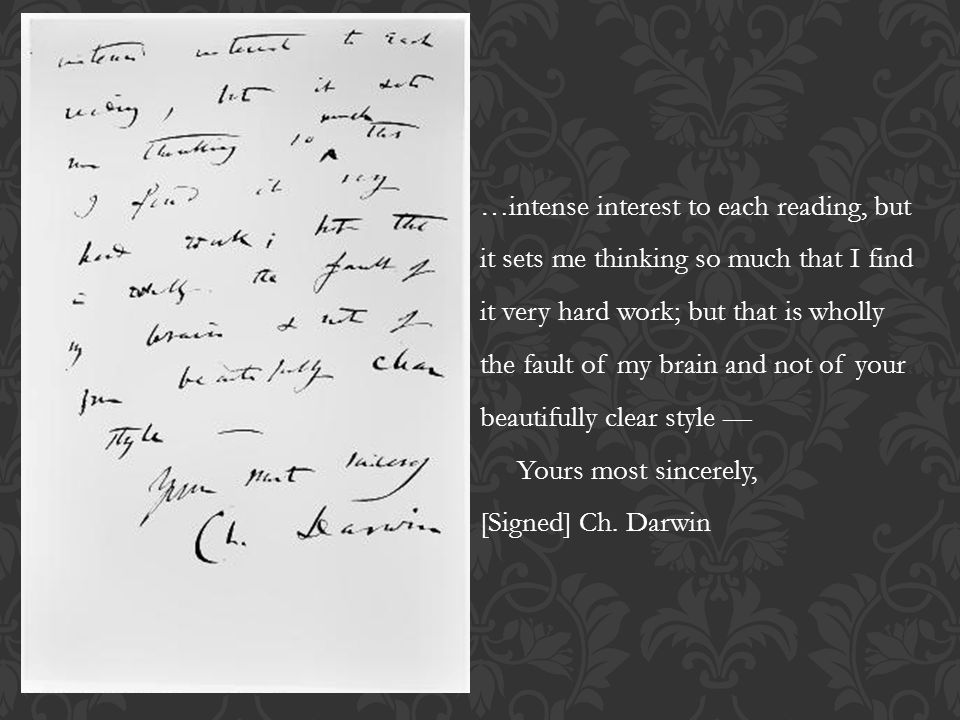 intense interest to each
reading, but it sets
me thinking so much that
I find it very
hard work; but that
is wholly the fault of
my brain & not of
your beautifully clear
style —
Yours most sincerely
Ch. Darwin
…intense interest to each reading, but
it sets me thinking so much that I find
it very hard work; but that is wholly
the fault of my brain and not of your
beautifully clear style —
Yours most sincerely,
[Signed] Ch. Darwin